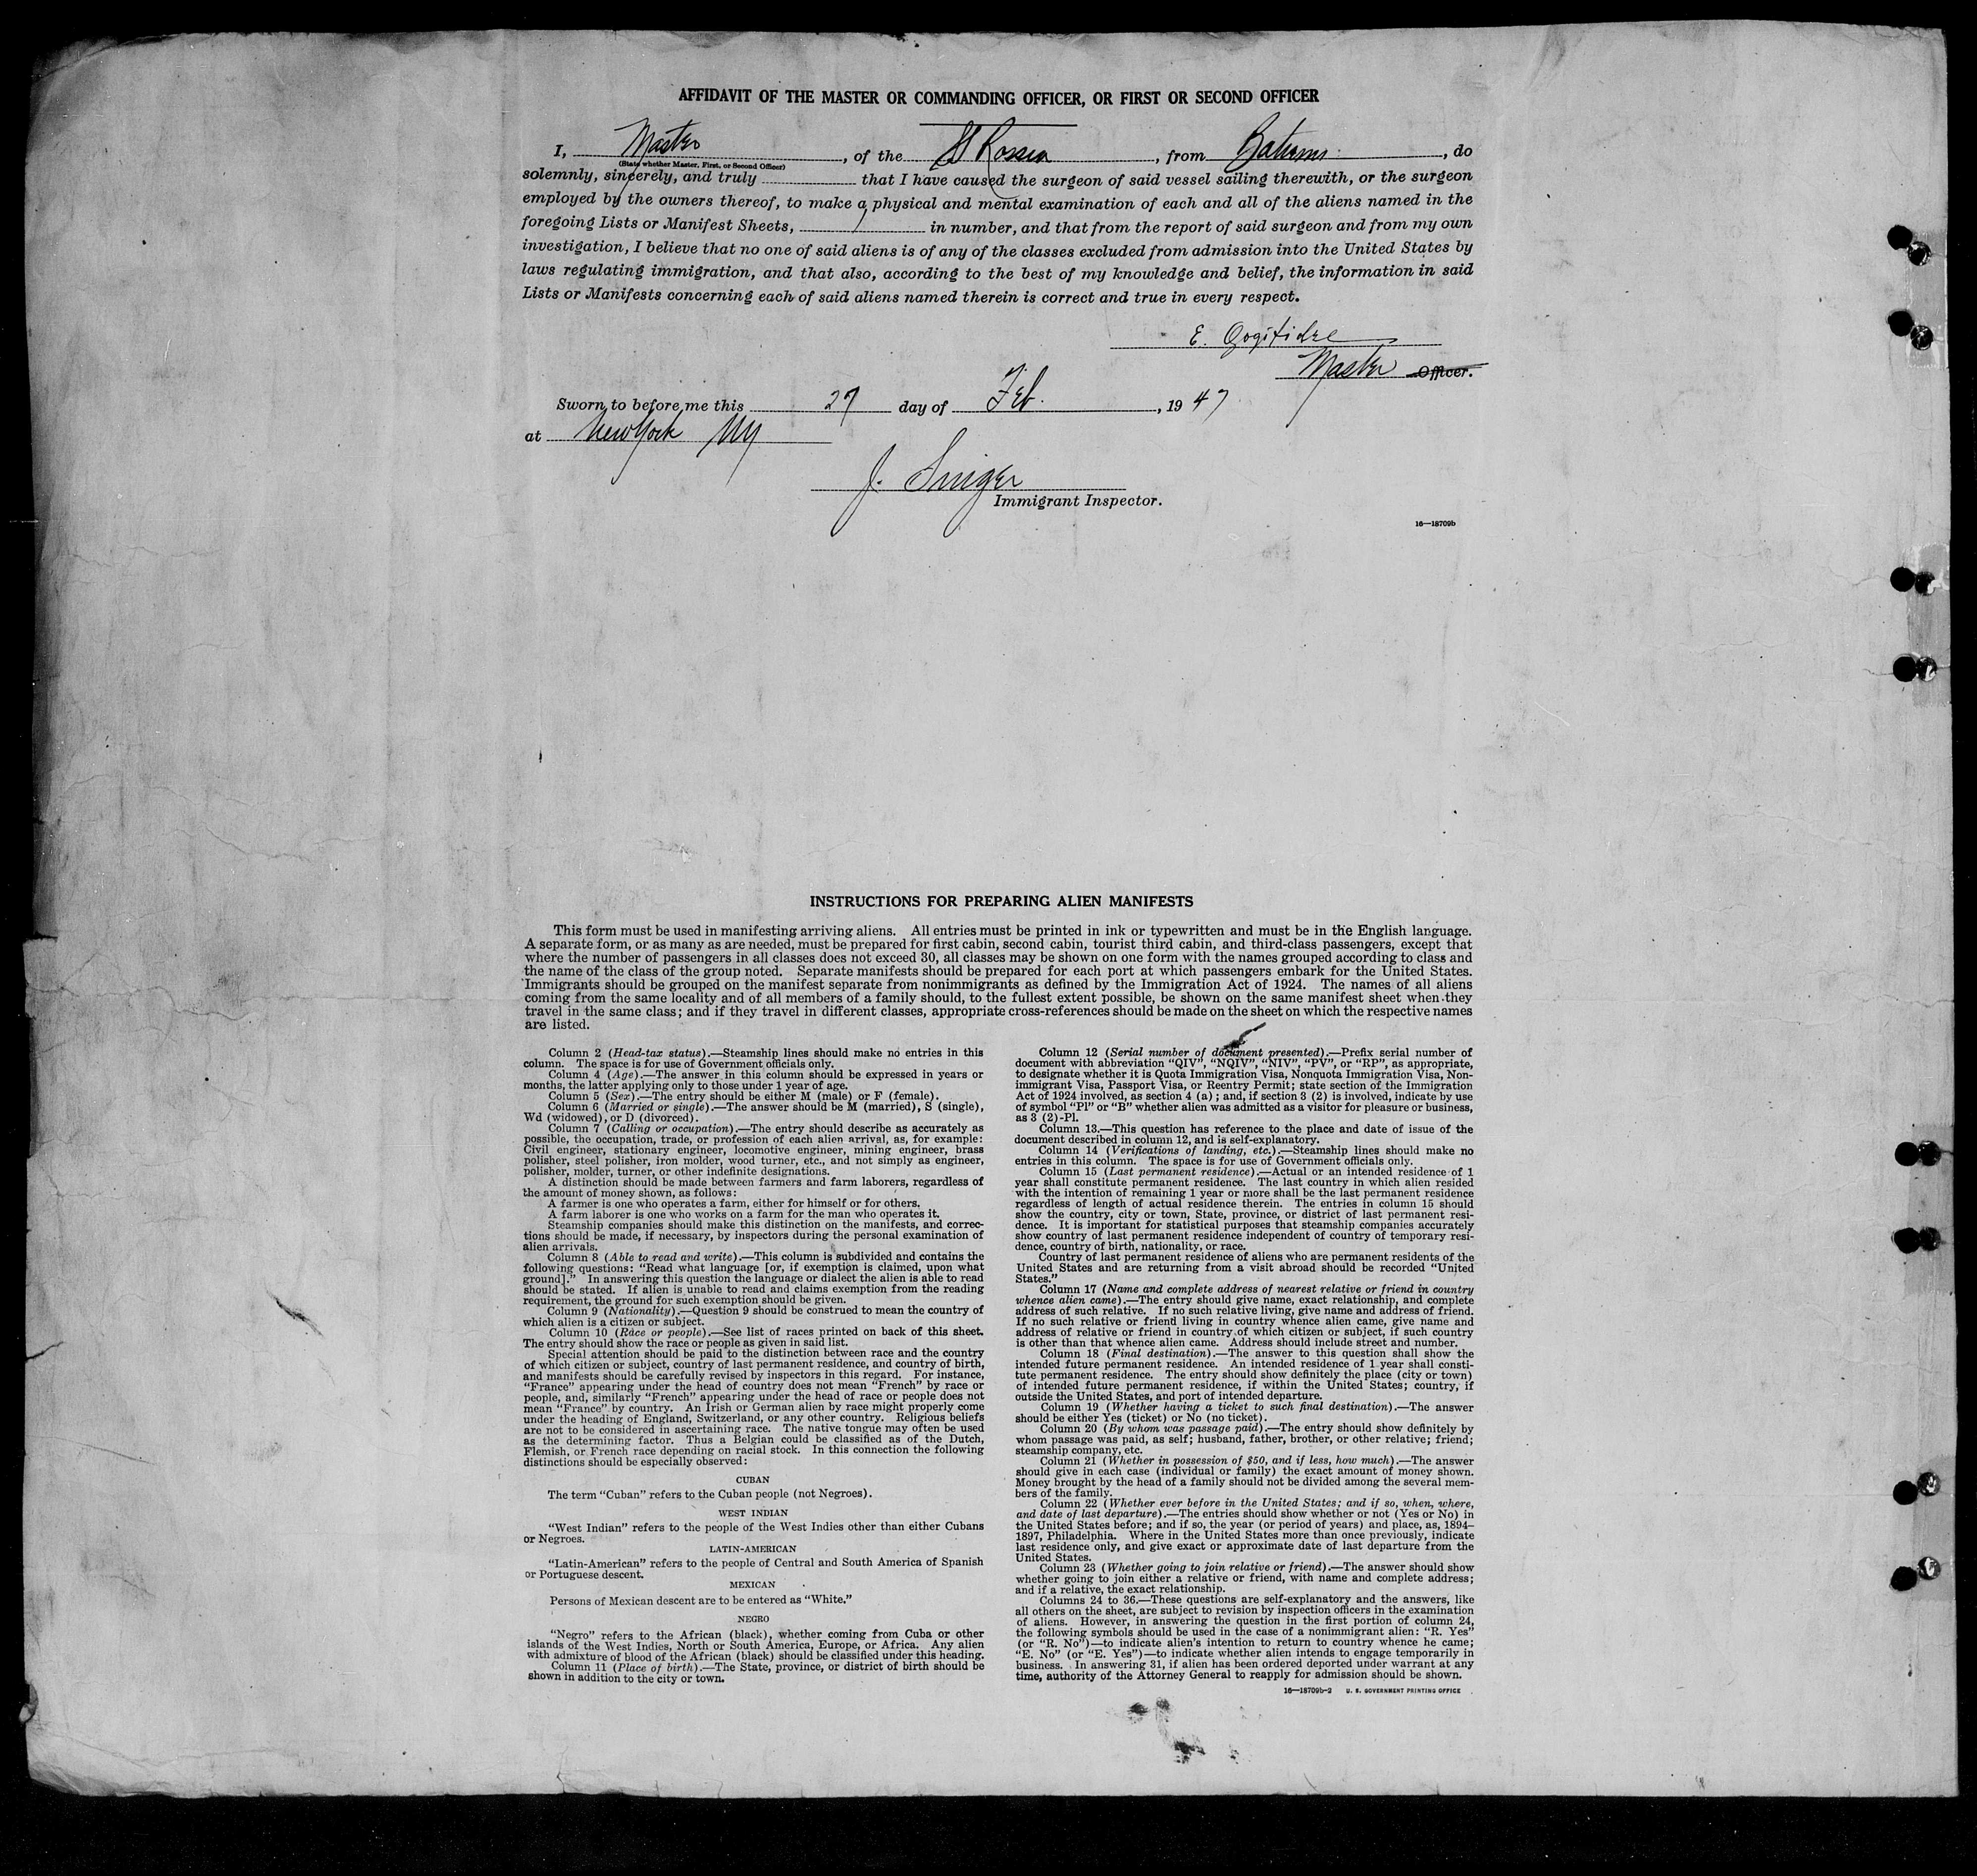 AFFIDAVIT OF THE MASTER OR COMMANDING OFFICER, OR FIRST OR SECOND OFFICER
I, Master, of the, from, do
(State whether Master, First, or Second Officer)
solemnly, sincerely, and truly that I have caused the surgeon of said vessel sailing therewith, or the surgeon
employed by the owners thereof, to make a physical and mental examination of each and all of the aliens named in the
foregoing Lists or Manifest Sheets, in number, and that from the report of said surgeon and from my own
investigation, I believe that no one of said aliens is of any of the classes excluded from admission into the United States by
laws regulating immigration, and that also, according to the best of my knowledge and belief, the information in said
Lists or Manifests concerning each of said aliens named therein is correct and true in every respect.
E.
Master Officer.
Sworn to before me this 27 day of Feb., 1947
at New York NY
J. Singer
Immigrant Inspector.
16—18709b
INSTRUCTIONS FOR PREPARING ALIEN MANIFESTS
This form must be used in manifesting arriving aliens. All entries must be printed in ink or typewritten and must be in the English language.
A separate form, or as many as are needed, must be prepared for first cabin, second cabin, tourist third cabin, and third-class passengers, except that
where the number of passengers in all classes does not exceed 30, all classes may be shown on one form with the names grouped according to class and
the name of the class of the group noted. Separate manifests should be prepared for each port at which passengers embark for the United States.
Immigrants should be grouped on the manifest separate from nonimmigrants as defined by the Immigration Act of 1924. The names of all aliens
coming from the same locality and of all members of a family should, to the fullest extent possible, be shown on the same manifest sheet when they
travel in the same class; and if they travel in different classes, appropriate cross-references should be made on the sheet on which the respective names
are listed.
Column 2 (Head-tax status).—Steamship lines should make no entries in this
column. The space is for use of Government officials only.
Column 4 (Age).—The answer in this column should be expressed in years or
months, the latter applying only to those under 1 year of age.
Column 5 (Sex).—The entry should be either M (male) or F (female).
Column 6 (Married or single).—The answer should be M (married), S (single),
Wd (widowed), or D (divorced).
Column 7 (Calling or occupation).—The entry should describe as accurately as
possible, the occupation, trade, or profession of each alien arrival, as, for example:
Civil engineer, stationary engineer, locomotive engineer, mining engineer, brass
polisher, steel polisher, iron molder, wood turner, etc., and not simply as engineer,
polisher, molder, turner, or other indefinite designations.
A distinction should be made between farmers and farm laborers, regardless of
the amount of money shown, as follows:
A farmer is one who operates a farm, either for himself or for others.
A farm laborer is one who works on a farm for the man who operates it.
Steamship companies should make this distinction on the manifests, and correc-
tions should be made, if necessary, by inspectors during the personal examination of
alien arrivals.
Column 8 (Able to read and write).—This column is subdivided and contains the
following questions: “Read what language [or, if exemption is claimed, upon what
ground].” In answering this question the language or dialect the alien is able to read
should be stated. If alien is unable to read and claims exemption from the reading
requirement, the ground for such exemption should be given.
Column 9 (Nationality).—Question 9 should be construed to mean the country of
which alien is a citizen or subject.
Column 10 (Race or people).—See list of races printed on back of this sheet.
The entry should show the race or people as given in said list.
Special attention should be paid to the distinction between race and the country
of which citizen or subject, country of last permanent residence, and country of birth,
and manifests should be carefully revised by inspectors in this regard. For instance,
“France” appearing under the head of country does not mean “French” by race or
people, and, similarly “French” appearing under the head of race or people does not
mean “France” by country. An Irish or German alien by race might properly come
under the heading of England, Switzerland, or any other country. Religious beliefs
are not to be considered in ascertaining race. The native tongue may often be used
as the determining factor. Thus a Belgian could be classified as of the Dutch,
Flemish, or French race depending on racial stock. In this connection the following
distinctions should be especially observed:
CUBAN
The term “Cuban” refers to the Cuban people (not Negroes).
WEST INDIAN
“West Indian” refers to the people of the West Indies other than either Cubans
or Negroes.
LATIN-AMERICAN
“Latin-American” refers to the people of Central and South America of Spanish
or Portuguese descent.
MEXICAN
Persons of Mexican descent are to be entered as “White.”
NEGRO
“Negro” refers to the African (black), whether coming from Cuba or other
islands of the West Indies, North or South America, Europe, or Africa. Any alien
with admixture of blood of the African (black) should be classified under this heading.
Column 11 (Place of birth).—The State, province, or district of birth should be
shown in addition to the city or town.
Column 12 (Serial number of document presented).—Prefix serial number of
document with abbreviation “QIV”, “NQIV”, “NIV”, “PV”, or “RP”, as appropriate,
to designate whether it is Quota Immigration Visa, Nonquota Immigration Visa, Non-
immigrant Visa, Passport Visa, or Reentry Permit; state section of the Immigration
Act of 1924 involved, as section 4 (a); and, if section 3 (2) is involved, indicate by use
of symbol “Pl” or “B” whether alien was admitted as a visitor for pleasure or business,
as 3 (2)-Pl.
Column 13.—This question has reference to the place and date of issue of the
document described in column 12, and is self-explanatory.
Column 14 (Verifications of landing, etc.).—Steamship lines should make no
entries in this column. The space is for use of Government officials only.
Column 15 (Last permanent residence).—Actual or an intended residence of 1
year shall constitute permanent residence. The last country in which alien resided
with the intention of remaining 1 year or more shall be the last permanent residence
regardless of length of actual residence therein. The entries in column 15 should
show the country, city or town, State, province, or district of last permanent resi-
dence. It is important for statistical purposes that steamship companies accurately
show country of last permanent residence independent of country of temporary resi-
dence, country of birth, nationality, or race.
Country of last permanent residence of aliens who are permanent residents of the
United States and are returning from a visit abroad should be recorded “United
States.”
Column 17 (Name and complete address of nearest relative or friend in country
whence alien came).—The entry should give name, exact relationship, and complete
address of such relative. If no such relative living, give name and address of friend.
If no such relative or friend living in country whence alien came, give name and
address of relative or friend in country of which citizen or subject, if such country
is other than that whence alien came. Address should include street and number.
Column 18 (Final destination).—The answer to this question shall show the
intended future permanent residence. An intended residence of 1 year shall consti-
tute permanent residence. The entry should show definitely the place (city or town)
of intended future permanent residence, if within the United States; country, if
outside the United States, and port of intended departure.
Column 19 (Whether having a ticket to such final destination).—The answer
should be either Yes (ticket) or No (no ticket).
Column 20 (By whom was passage paid).—The entry should show definitely by
whom passage was paid, as self; husband, father, brother, or other relative; friend;
steamship company, etc.
Column 21 (Whether in possession of $50, and if less, how much).—The answer
should give in each case (individual or family) the exact amount of money shown.
Money brought by the head of a family should not be divided among the several mem-
bers of the family.
Column 22 (Whether ever before in the United States; and if so, when, where,
and date of last departure).—The entries should show whether or not (Yes or No) in
the United States before; and if so, the year (or period of years) and place, as, 1894–
1897, Philadelphia. Where in the United States more than once previously, indicate
last residence only, and give exact or approximate date of last departure from the
United States.
Column 23 (Whether going to join relative or friend).—The answer should show
whether going to join either a relative or friend, with name and complete address;
and if a relative, the exact relationship.
Columns 24 to 36.—These questions are self-explanatory and the answers, like
all others on the sheet, are subject to revision by inspection officers in the examination
of aliens. However, in answering the question in the first portion of column 24,
the following symbols should be used in the case of a nonimmigrant alien: “R. Yes”
(or “R. No”)—to indicate alien’s intention to return to country whence he came;
“E. No” (or “E. Yes”)—to indicate whether alien intends to engage temporarily in
business. In answering 31, if alien has been ordered deported under warrant at any
time, authority of the Attorney General to reapply for admission should be shown.
16—18709b-2 U. S. GOVERNMENT PRINTING OFFICE